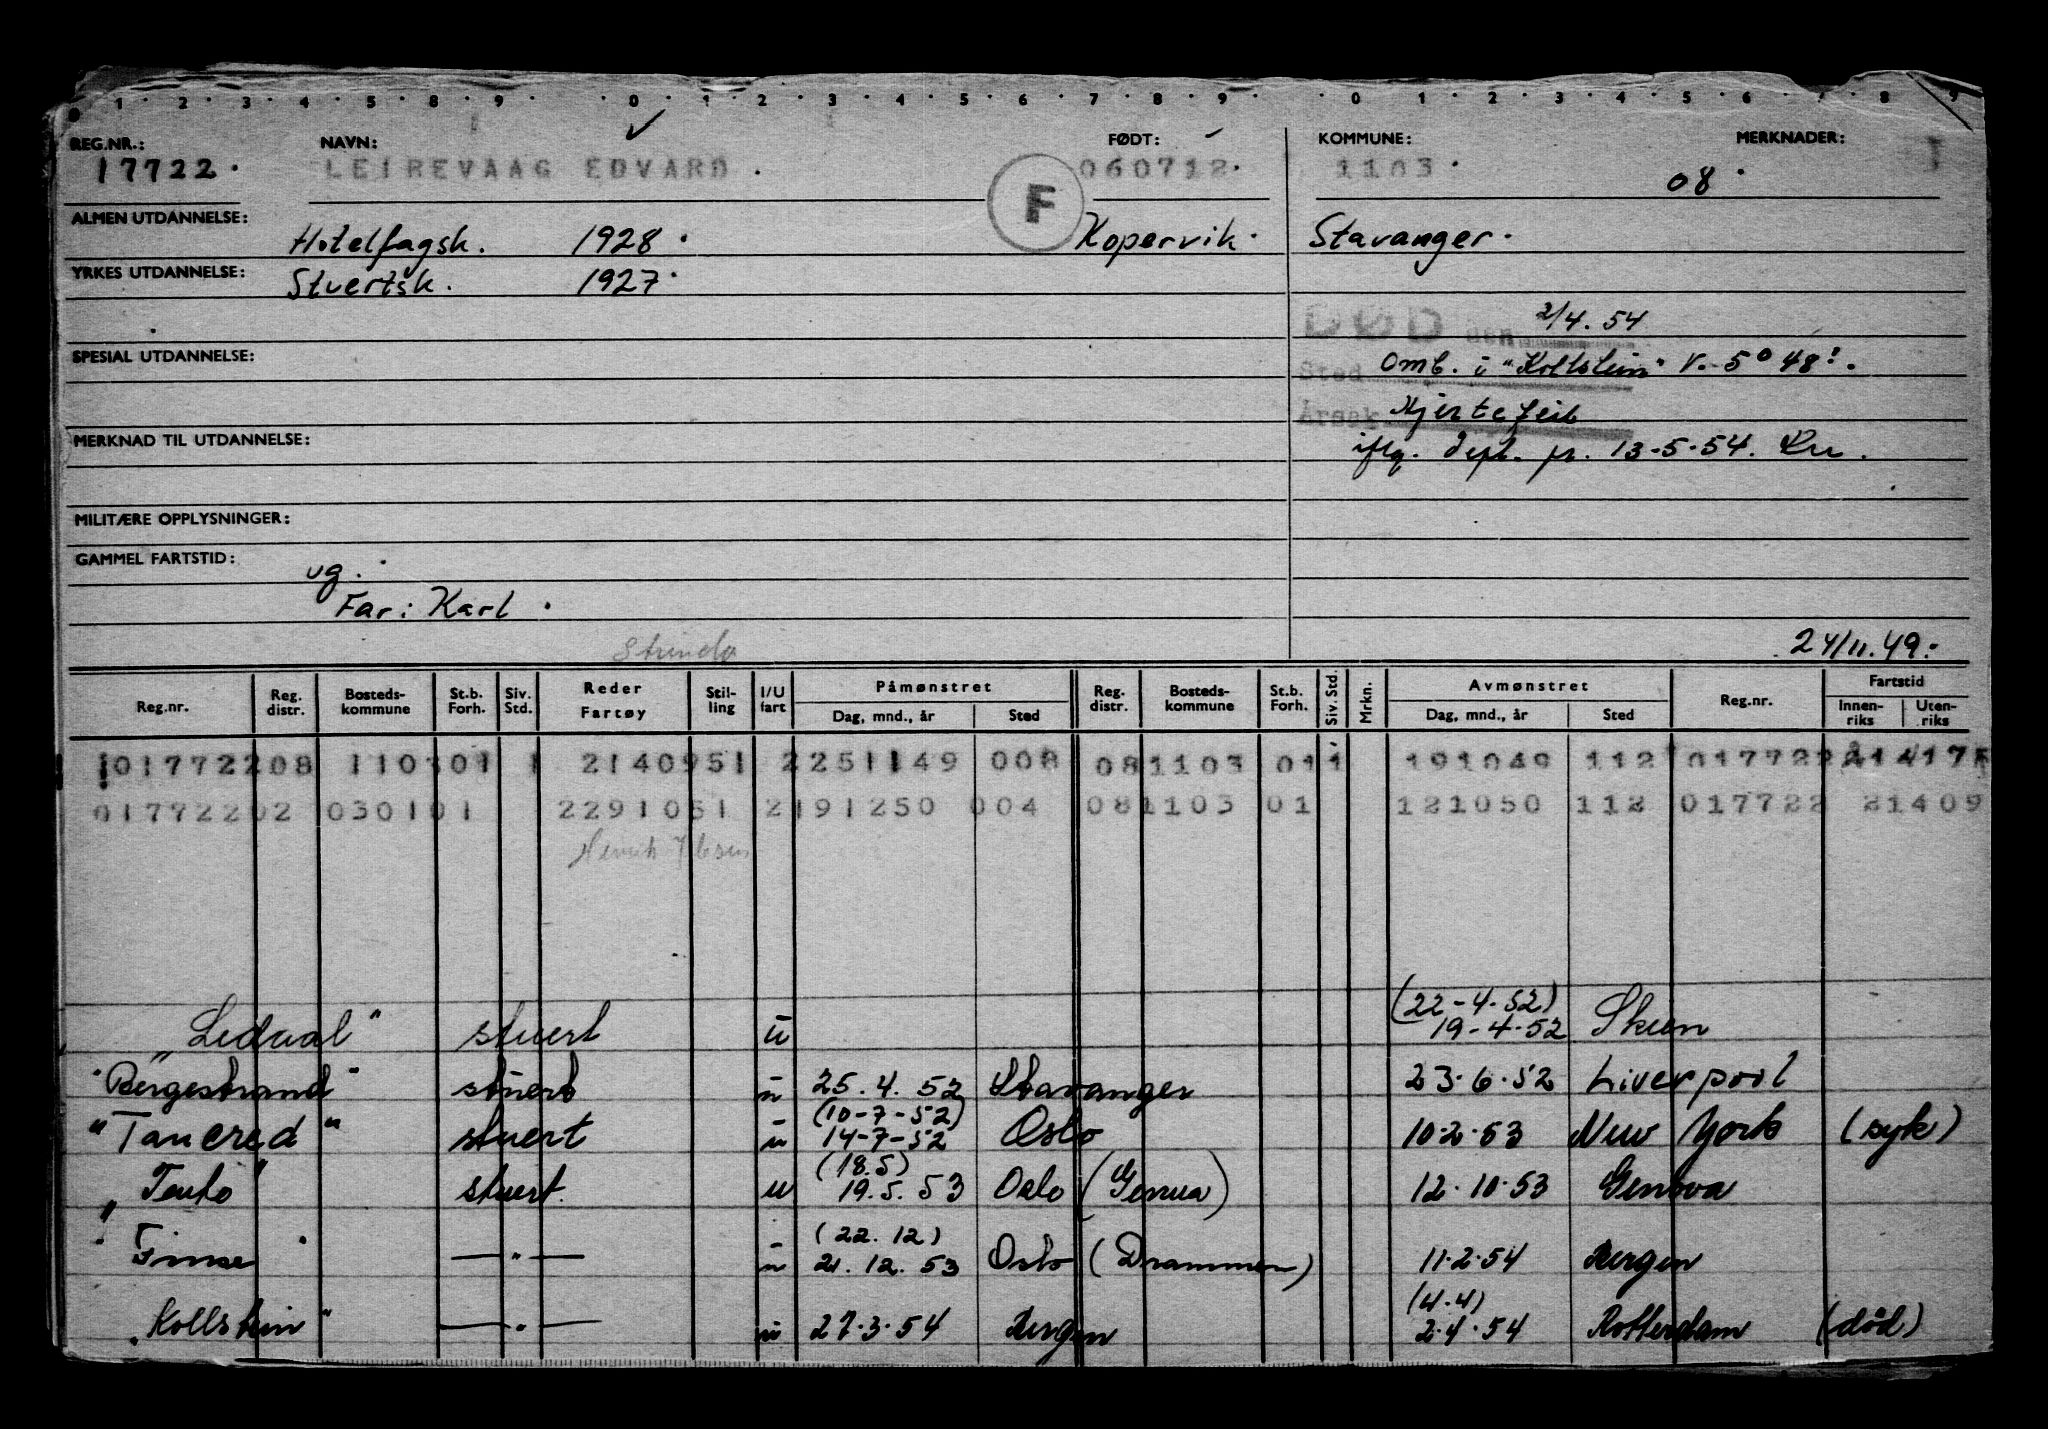 0 · 1 · 2 · 3 · 4 · 5 · 8 · 9 · 0 · 1 · 2 · 3 · 4 · 5 · 6 · 7 · 8 · 9 · 0 · 1 · 2 · 3 · 4 · 5 · 6 · 7 · 8 · 9
REG.NR.: NAVN: FØDT: KOMMUNE: MERKNADER:
17722. LEIREVAAG EDVARD. 060712. 1103. 08.
F
ALMEN UTDANNELSE: Hotelfagsk. 1928. Kopervik. Stavanger.
YRKES UTDANNELSE: Stuertsk. 1927.
DØD den 2/4. 54
SPESIAL UTDANNELSE:
Sted omb. i "Kollstein"
Årsak Hjertefeil
MERKNAD TIL UTDANNELSE:
iflg. dept. pr. 13-5-54.
MILITÆRE OPPLYSNINGER:
GAMMEL FARTSTID: ug.
Far: Karl.
Strinda 24/11.49.-
Reg.nr. Reg. distr. Bosteds-kommune St.b. Forh. Siv. Std. Reder Fartøy Stil-ling I/U fart Påmønstret Dag, mnd., år Sted Reg. distr. Bosteds-kommune St.b. Forh. Siv. Std. Mrkn. Avmønstret Dag, mnd., år Sted Reg.nr. Fartstid Innen-riks Uten-riks
01772208 110301 1 2140951 2251149 008 081103 011 191049 112 017722
01772202 030101 2291051 2191250 004 081103 01 121050 112 017722 21409
Henrik Ibsen
(22-4-52)
"Ledaal" stuert u 19-4-52 Skien
"Bergestrand" stuert u 25.4.52 Stavanger 23.6.52 Liverpool
(10-7-52)
"Tancred" stuert u 14-7-52 Oslo 10.2.53 New York (syk)
(18.5)
stuert. u 19.5.53 Oslo (Genua) 12.10.53 Genova
(22.12)
"Finse" —"— u 21.12.53 Oslo (Drammen) 11.2.54 Bergen
(4.4)
"Kollstein" —"— u 27.3.54 Bergen 2.4.54 Rotterdam (död)